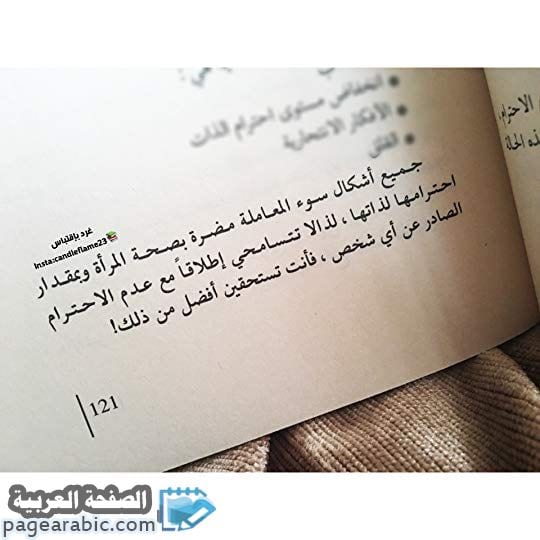 انخفاض مستوى احترام الذات
الأفكار الانتحارية
القلق
جميع أشكال سوء المعاملة مضرة بصحة المرأة وبمقدار
احترامها لذاتها ، لذا لا تتسامحي إطلاقاً مع عدم الاحترام
الصادر عن أي شخص ، فأنت تستحقين أفضل من ذلك!
121
الاحترام
هذه الحالة
غرد بإقتباس
Insta:candleflame23
الصفحة العربية
pagearabic.com